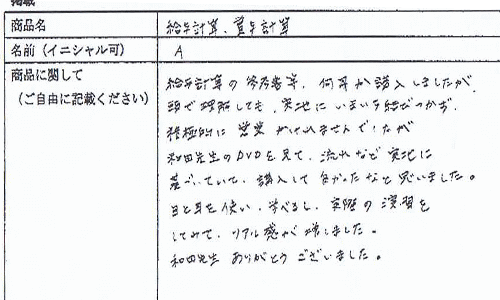 商品名 給与計算、賞与計算
名前（イニシャル可） A
商品に関して
（ご自由に記載ください）
給与計算の参考書等、何冊か購入しましたが、
頭で理解しても、実地にいまいち結びつかず、
積極的に営業がけれませんでしたが
和田先生のDVDを見て、流れなど実地に
基づいていて、購入して良かったなと思いました。
目と耳を使い、学べるし、実際の演習を
してみて、リアル感が増しました。
和田先生ありがとうございました。